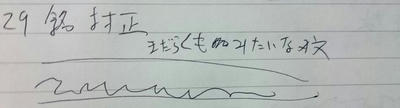 29 銘 村正
まだらくもみたいな文